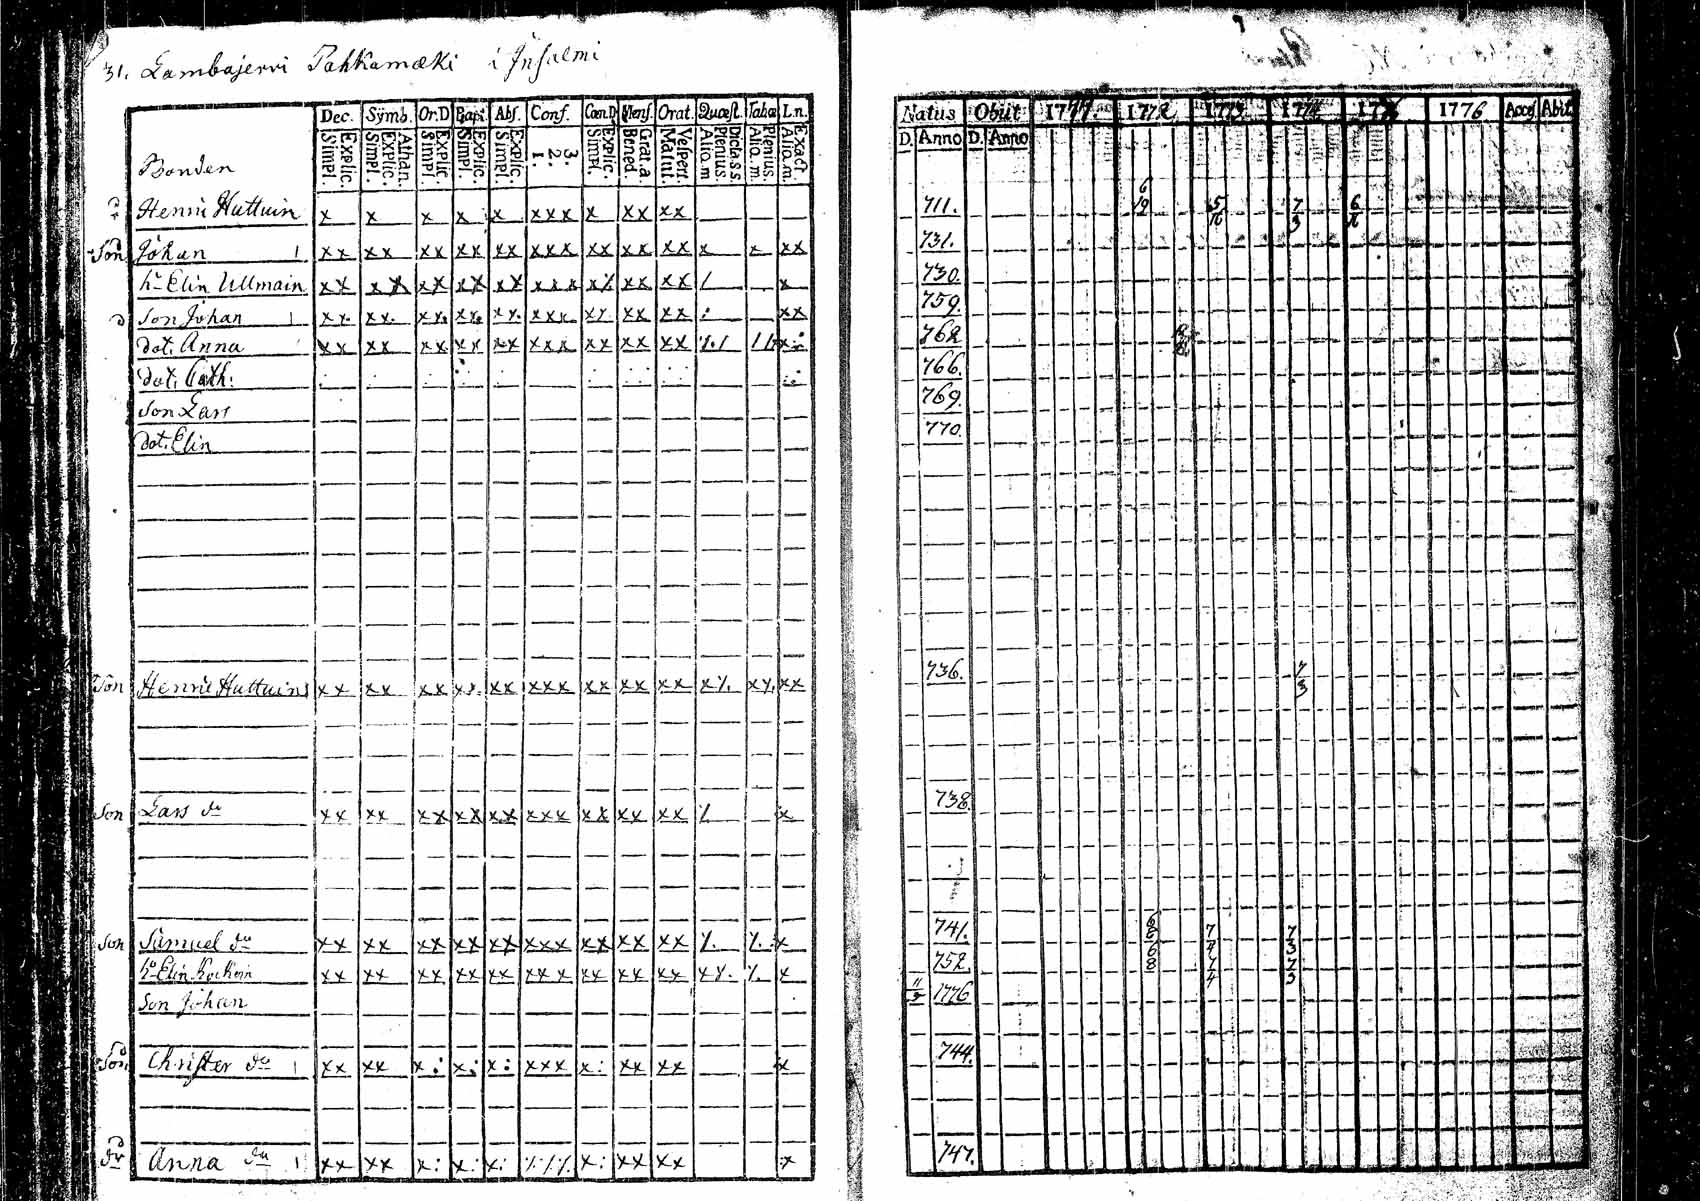 31. Lambajervi Pahkamæki i Jnsalmi
Dec. Sÿmb. Or.D Bapt. Abs. Conf. Cœn.D Mens. Orat. Quæst. Tabæ L.n.
Explic. Simpl. Athan. Explic. Simpl. Explic. Simpl. Explic. Simpl. Explic. Simpl. 3. 2. 1. Explic. Simpl. Grat.a Bened. Vespert. Matut. Dicta.s.s. Plenius. Aliq.m Plenius. Aliq.m. Exact Aliq.m.
Natus Obiit 1771. 1772 1773 1774 1775 1776 Access Abit
D. Anno D. Anno
Bonden
Henric Huttuin x x x x x xxx x xx xx 711. 6 19 5 16 7 3 6 16
Son Johan xx xx xx xx xx xxx xx xx xx x x xx 731.
h. Elin Ullmain xx xx xx xx xx xxx xx xx xx / x 730.
Son Johan xx. xx. xx. xx. xx. xxx xx. xx xx xx 759.
dot. Anna xx xx xx xx xx xxx xx xx xx 762
dot. Cath: 766.
Son Lars 769.
dot. Elin 770.
Son Henric Huttuin xx xx xx xx xx xxx xx xx xx x/. x/. xx 736. 7 3
Son Lars do xx xx xx xx xx xxx xx xx xx / x 738.
Son Samuel do xx xx xx xx xx xxx xx xx xx /. /. x 741. 6 8 7 4 7 3
h. Elin Kockoin xx xx xx xx xx xxx xx xx xx x/. /. x 752. 6 8 7 4 7 3
Son Johan 1776
Son Christer do xx xx x: x: x: xxx x: xx xx x 744.
dr Anna do xx xx x: x: x: /// x: xx xx x 747.